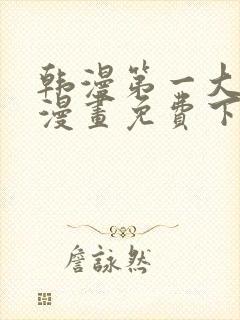 韩漫第一大
漫畫免費下
詹詠然